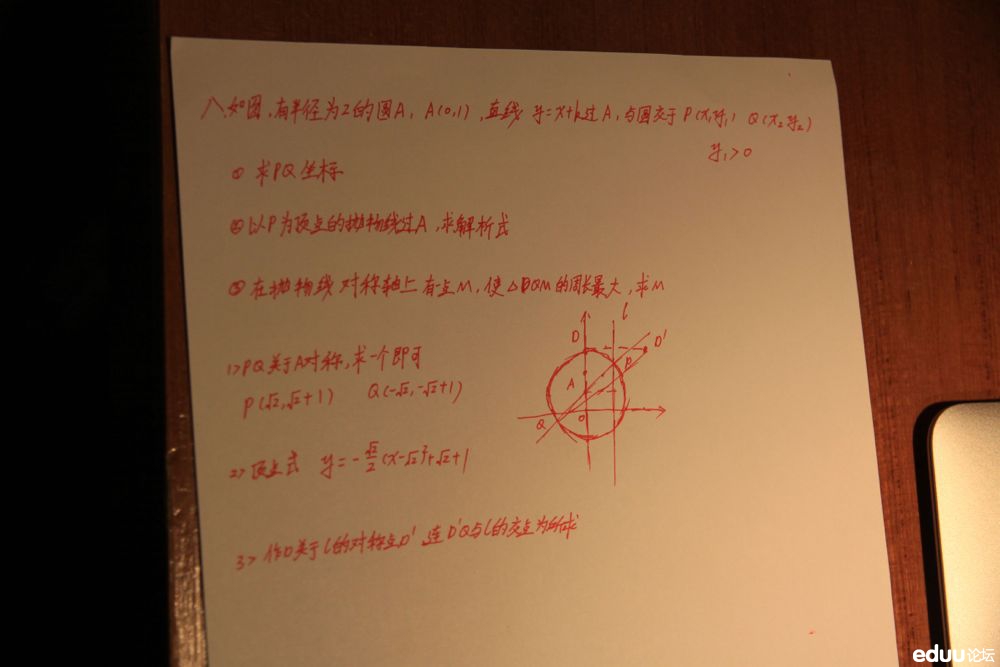 八、如图,有半径为2的圆A,A(0,1),直线 y=x+k过A,与圆交于 P(x₁y₁) Q(x₂y₂)
y₁>0
① 求PQ坐标
② 以P为顶点的抛物线过A,求解析式
③ 在抛物线对称轴上有一点M,使△DQM的周长最大,求M
1> PQ关于A对称,求一个即可
P(√2,√2+1) Q(-√2,-√2+1)
2> 顶点式 y=-√2/2(x-√2)²+√2+1
3> 作D关于l的对称点D' 连D'Q与l的交点为所求
l
D
D'
P
A
Q
O
eduu论坛